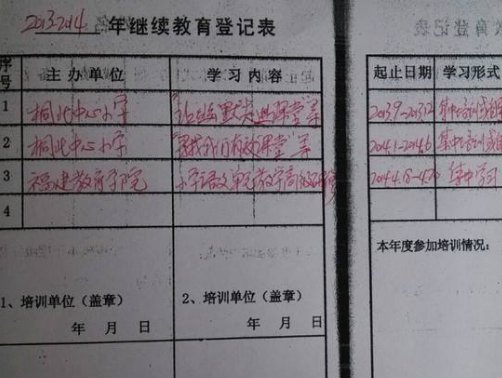 2013-2014 年继续教育登记表
序号 主办单位 学习内容 起止日期 学习形式
1 桐北中心小学 "让幽默走进课堂"等 2013.9-2013.12 集中培训
2 桐北中心小学 课堂"等 2014.1-2014.6 集中培训
3 福建教育学院 小学语文单元教学 2014.4. 集中学习
4
本年度参加培训情况：
1、培训单位（盖章） 2、培训单位（盖章）
年 月 日 年 月 日